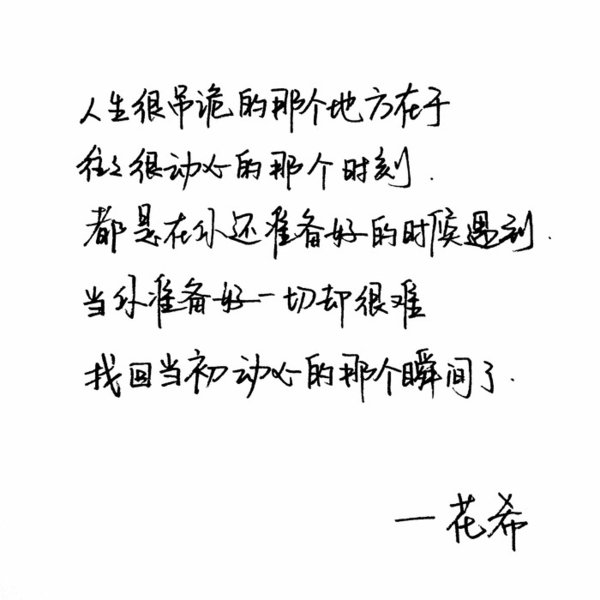 人生很吊诡的那个地方在于
往往很动心的那个时刻.
都是在你还准备好的时候遇到.
当你准备好一切却很难
找回当初动心的那个瞬间了.
—花希